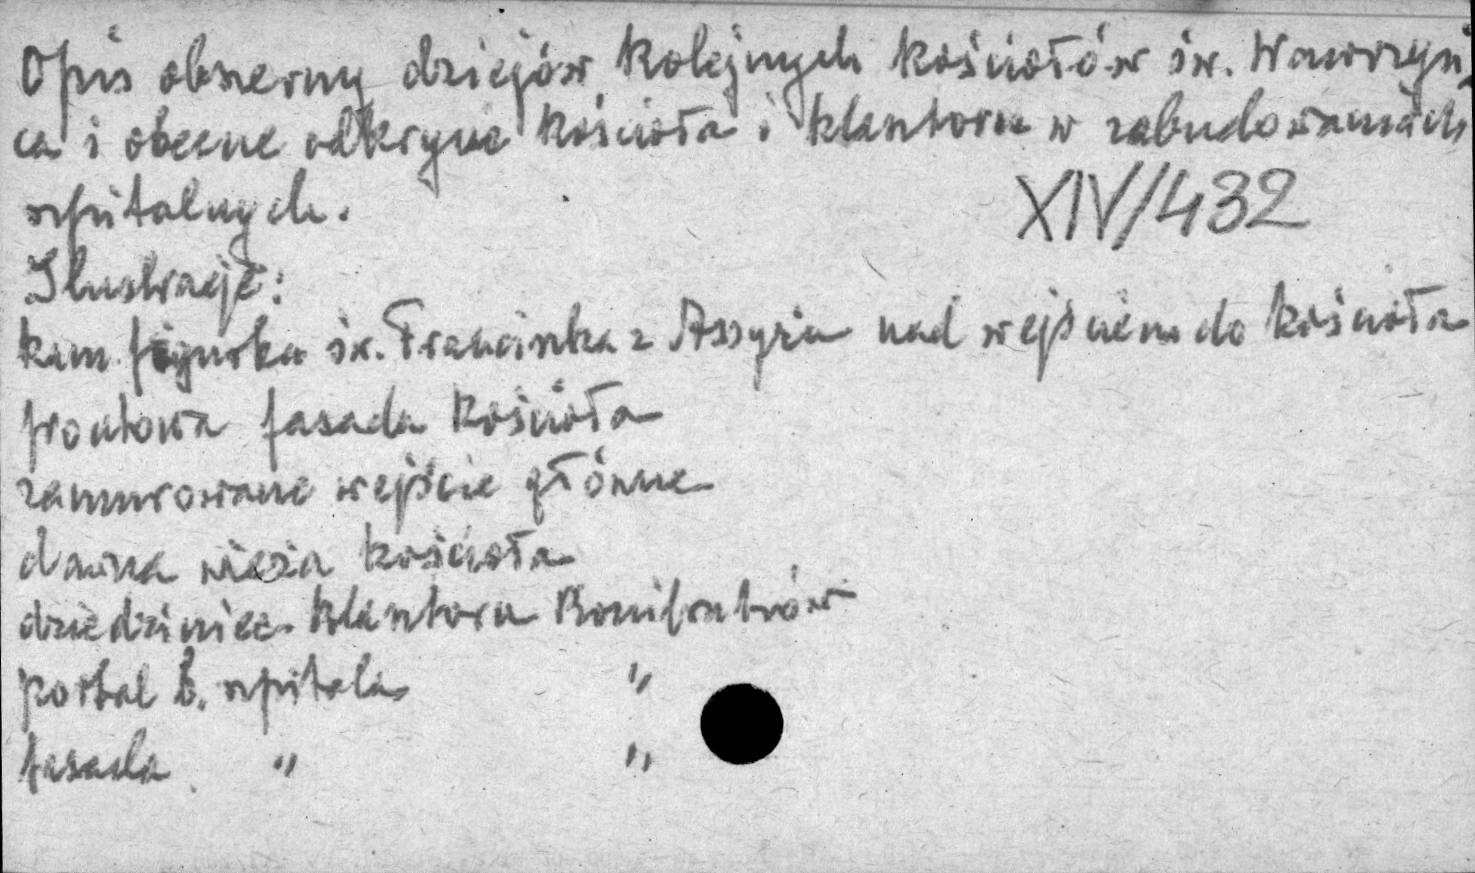 Opis obszerny dziejów kolejnych kościołów św. Wawrzyń
ca i obecne odkrycie kościoła i klasztoru w zabudowaniach
szpitalnych.
XIV/432
Ilustracje:
kam. figurka św. Franciszka z Assyżu nad wejściem do kościoła
frontowa fasada kościoła
zamurowane wejście główne
dawna wieża kościoła
dziedziniec klasztoru Bonifratrów
portal b. szpitala "
fasada " "